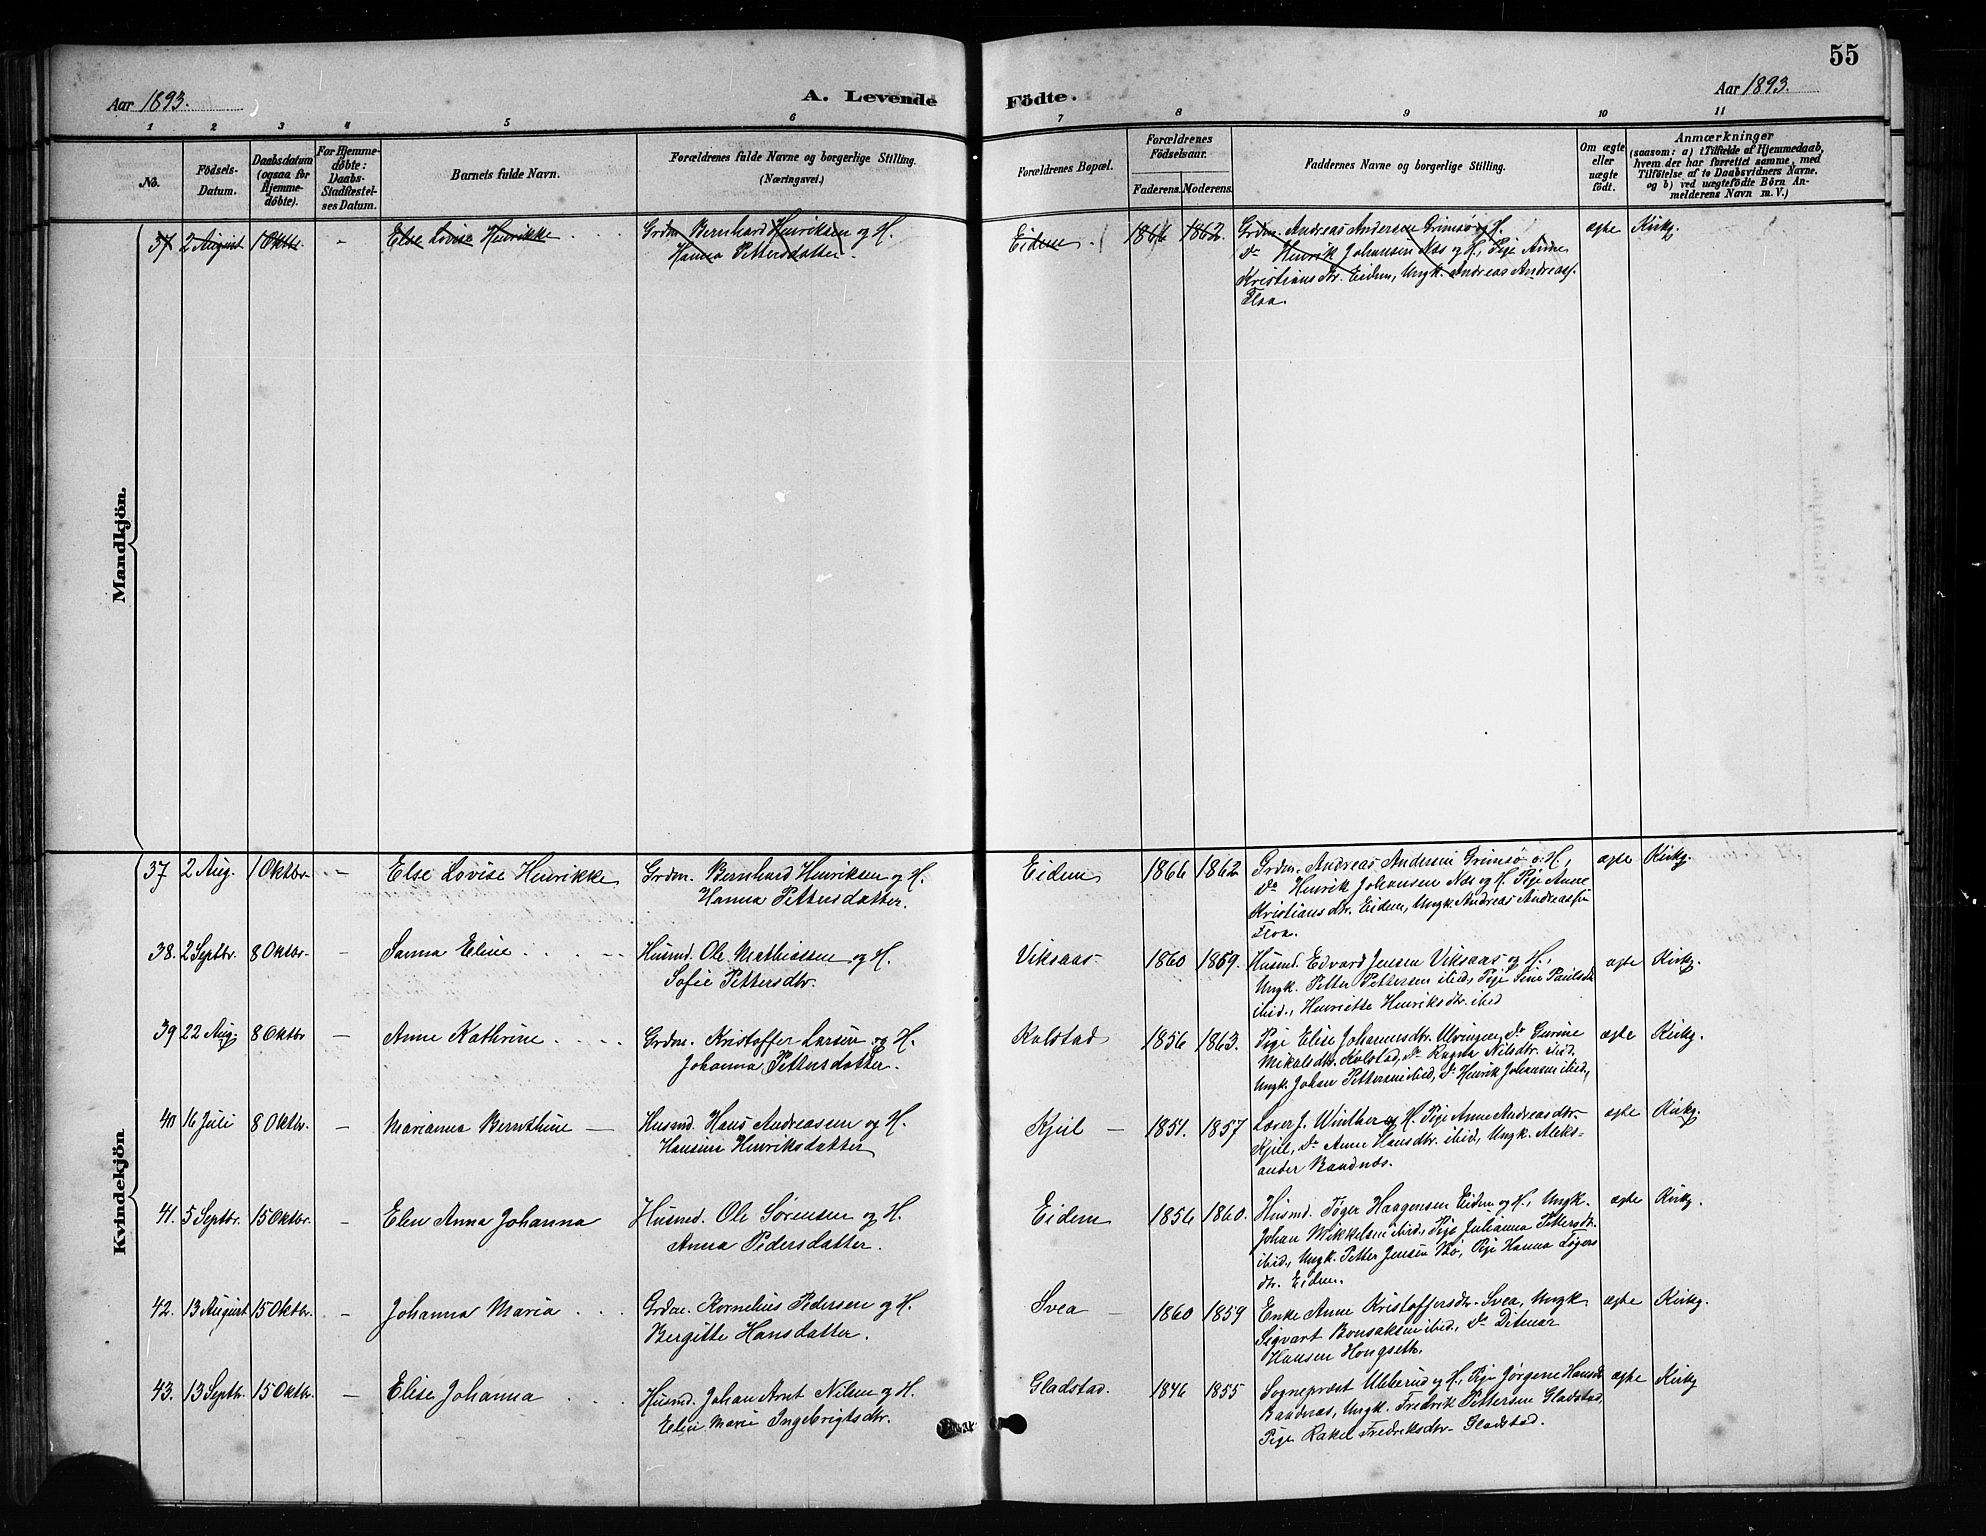 55
Aar 1893.
A. Levende Födte.
Aar 1893.
1 2 3 4 5 6 7 8 9 10 11
No.
Födsels-
Datum.
Daabsdatum
(ogsaa for
Hjemme-
döbte).
For Hjemme-
döbte:
Daabs-
Stadfæstel-
ses Datum.
Barnets fulde Navn.
Forældrenes fulde Navne og borgerlige Stilling.
(Næringsvei.)
Forældrenes Bopæl.
Forældrenes
Födselsaar.
Faderens. Moderens.
Faddernes Navne og borgerlige Stilling.
Om ægte
eller
uægte
födt.
Anmærkninger
(saasom: a) i Tilfælde af Hjemmedaab,
hvem der har forrettet samme, med
Tilföielse af to Daabsvidners Navne,
og b) ved uægtefödte Börn An-
melderens Navn m. V.)
Mandkjön.
37 2 August 1 Oktbr - Else Lovise Henrikke Grdm. Bernhard Henriksen og H.
Hanna Pettersdatter.
Eidem. 1866 1862. Grdm. Andreas Andersen Grimsø og H.
Do Henrik Johansen Næs og H., Pige Anne
Kristiansdtr. Eidem, Ungk. Andreas Andreass.
Floa.
ægte Kirkg.
Kvindekjön
37 2 Aug. 1 Oktbr. - Else Lovise Henrikke Grdm. Bernhard Henriksen og H.
Hanna Pettersdatter.
Eidem 1866 1862 Grdm. Andreas Andersen Grimsø o. H.,
Do Henrik Johansen Næs og H. Pige Anne
Kristiansdtr. Eidem, Ungk. Andreas Andreassen
Floa.
ægte Kirkg.
38. 2 Septbr. 8 Oktbr. - Sanna Eline Husmd. Ole Mathiassen og H.
Sofie Pettersdtr.
Viksaas 1860 1859. Husmd. Edvard Jensen Viksaas og H.,
Ungk. Petter Pettersen ibid., Pige Sine Paulsdtr
ibid., Henriette Henriksdtr. ibid
ægte Kirkg.
39 22 Aug. 8 Oktbr - Anne Kathrine Grdm. Kristoffer Larsen og H.
Johanna Pettersdatter.
Kolstad 1856 1863. Pige Elise Johannesdtr. Ulvingen, Do Gurine
Mikalsdtr. Kolstad, Do Ragna Nilsdtr. ibid.
Ungk. Johan Pettersen ibid., Do Henrik Johansen ibid.,
ægte Kirkg.
40 16 Juli 8 Oktbr. - Marianna Bernthine Husmd. Hans Andreassen og H.
Hansine Henriksdatter
Kjul 1851. 1857 Lærer J. Winther og H. Pige Anne Andreasdtr.
Kjul, Do Anne Hansdtr. ibid, Ungk. Aleks-
ander Baadnæs.
ægte Kirkg.
41. 5 Septbr. 15 Oktbr. - Elen Anna Johanna Husmd. Ole Sørensen og H.
Anna Pedersdatter.
Eidem 1856 1860. Husmd. Tøger Haagensen Eidem og H., Ungk.
Johan Mikkelsen ibid., Pige Julianna Pettersdtr.
ibid., Ungk. Petter Jensen Bø, Pige Hanna Tøgers
dtr. Eidem.
ægte Kirkg.
42. 13 August 15 Oktbr. - Johanna Maria Grdm. Kornelius Pedersen og H.
Bergitte Hansdatter.
Svea 1860 1859 Enke Anne Kristoffersdtr. Svea, Ungk.
Sigvart Bonsaksen ibid., Do Ditmar
Hansen Hongseth.
ægte Kirkg.
43. 13 Septbr. 15 Oktbr. - Elise Johanna Husmd. Johan Arnt Nilsen og H.
Elen Marie Ingebrigtsdtr.
Gladstad. 1846 1855 Sogneprest Ulleberud og H., Pige Jørgene Hansdtr
Baadnæs, Ungk. Fredrik Pettersen Gladstad,
Pige Rakel Fredriksdtr. Gladstad.
ægte Kirkg